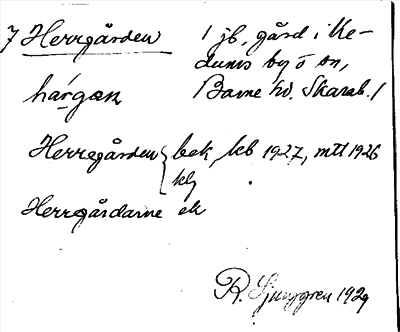 7 Herrgården 1 jb, gård i Ke-
dums by o sn,
hárgan Barne hd. Skarab. l
Herregården bek, kb 1927, mtl 1926
klj
Herrgårdarne ek
R. Ljunggren 1929